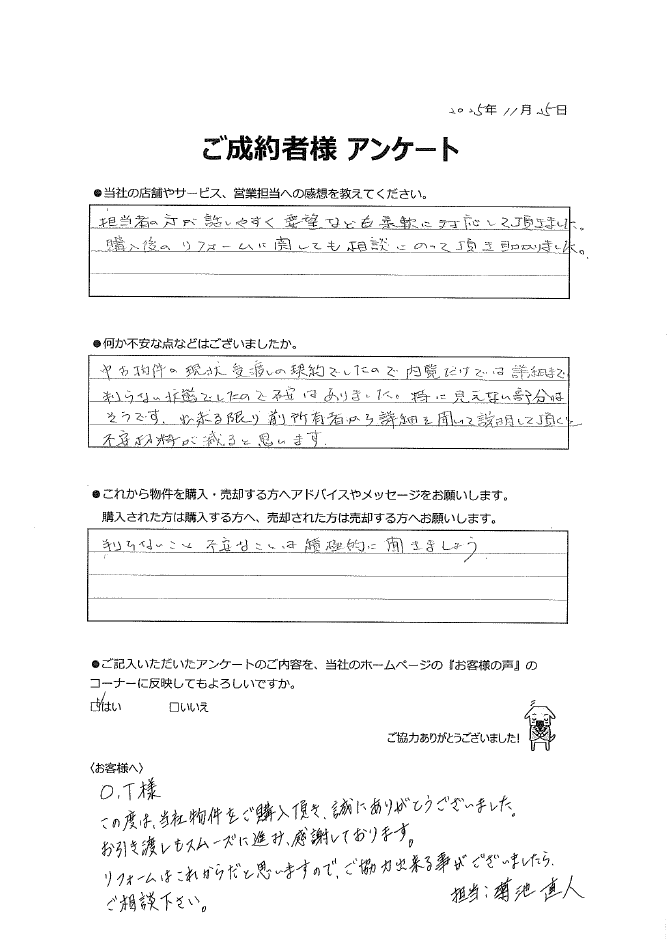 2025年 11月 25日
ご成約者様 アンケート
●当社の店舗やサービス、営業担当への感想を教えてください。
担当者の方が話しやすく 要望なども柔軟に対応して頂きました。
購入後のリフォームに関しても相談にのって頂き助かりました。
●何か不安な点などはございましたか。
中古物件の現状受渡しの契約でしたので内覧だけでは詳細まで
判らない状態でしたので不安はありました。特に見えない部分は
そうです。出来る限り前所有者から詳細を聞いて説明して頂くと
不安材料が減ると思います。
●これから物件を購入・売却する方へアドバイスやメッセージをお願いします。
購入された方は購入する方へ、売却された方は売却する方へお願いします。
判らないこと 不安なことは積極的に聞きましょう
●ご記入いただいたアンケートのご内容を、当社のホームページの『お客様の声』の
コーナーに反映してもよろしいですか。
☑はい □いいえ
ご協力ありがとうございました!
〈お客様へ〉
O.T様
この度は、当社物件をご購入頂き、誠にありがとうございました。
お引き渡しもスムーズに進み、感謝しております。
リフォームはこれからだと思いますので、ご協力出来る事がございましたら、
ご相談下さい。
担当:菊池 直人